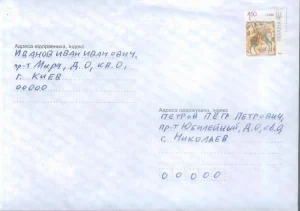 4.50
Адреса відправника, індекс
Иванов Иван Иванович,
пр-т Мира, Д.0, кв.0,
г. Киев
00000
Адреса одержувача, індекс
Петров Пётр Петрович,
пр-т Юбилейный, Д.0, кв.0
с. Николаев
00000